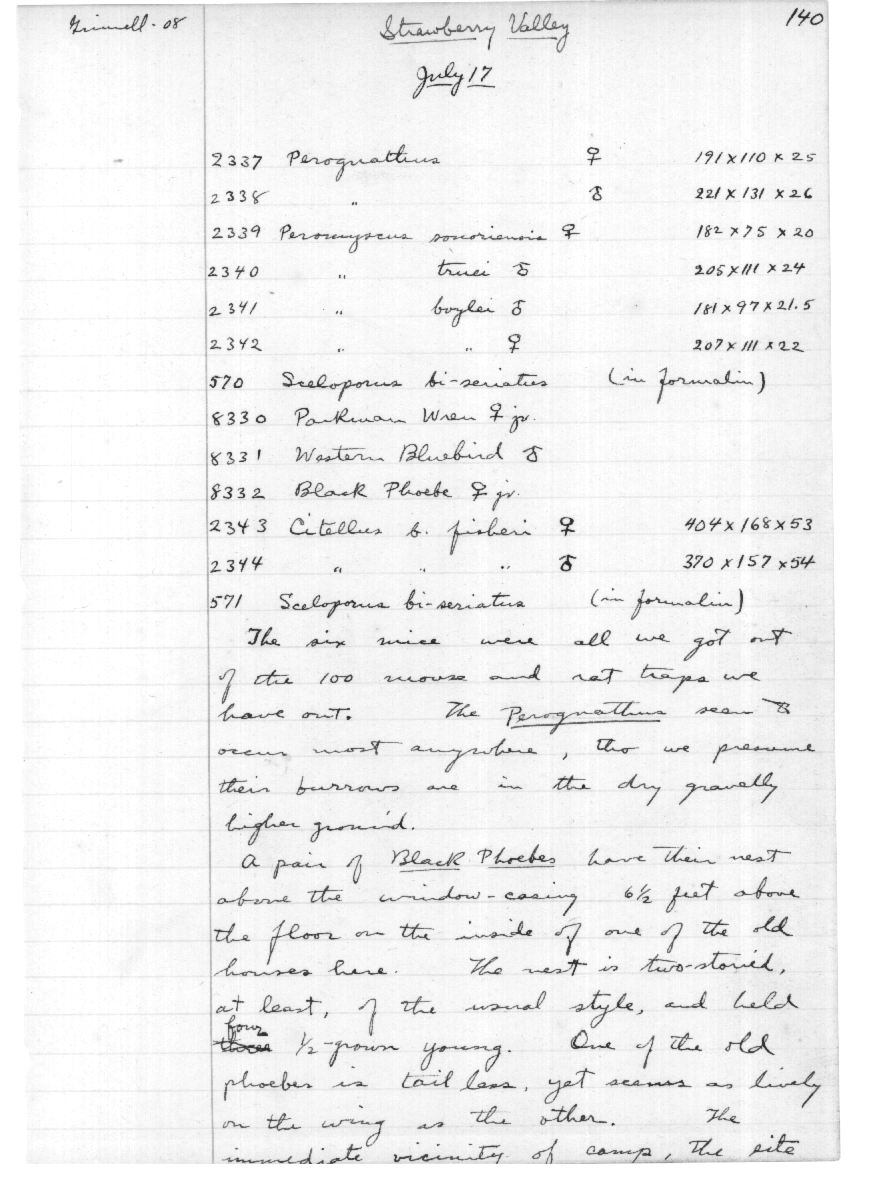 Grinnell-08
Strawberry Valley
140
July 17
2337 Perognathus ♀ 191 x 110 x 25
2338 " ♂ 221 x 131 x 26
2339 Peromyscus sonoriensis ♀ 182 x 75 x 20
2340 " truei ♂ 205 x 111 x 24
2341 " boylei ♂ 181 x 97 x 21.5
2342 " " ♀ 207 x 111 x 22
570 Sceloporus bi-seriatus (in formalin)
8330 Parkman Wren ♀ jv.
8331 Western Bluebird ♂
8332 Black Phoebe ♀ jv.
2343 Citellus b. fisheri ♀ 404 x 168 x 53
2344 " " " ♂ 370 x 157 x 54
571 Sceloporus bi-seriatus (in formalin)
The six mice were all we got out
of the 100 mouse and rat traps we
have out. The Perognathus seem to
occur most anywhere, tho we presume
their burrows are in the dry gravelly
higher ground.
A pair of Black Phoebes have their nest
above the window-casing 6½ feet above
the floor on the inside of one of the old
houses here. The nest is two-storied,
at least, of the usual style, and held
four
three ½-grown young. One of the old
phoebes is tail less, yet seems as lively
on the wing as the other. The
immediate vicinity of camp, the site